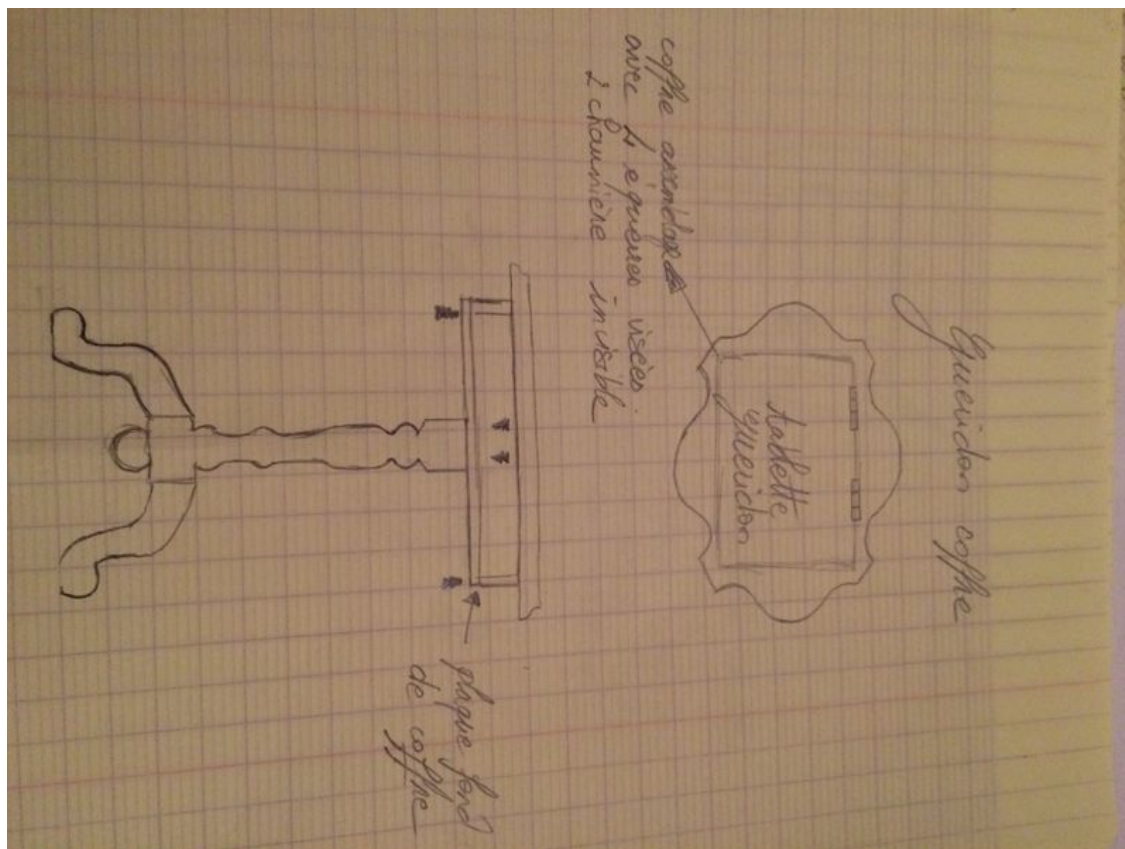 Gueridon coffre
tablette
gueridon
coffre assemblage
avec 4 équerres vissées
2 charnière invisible
plaque fond
de coffre